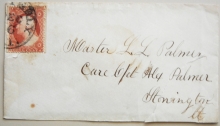 Master L. L. Palmer
Care Capt Alx Palmer
Stonington
Ct